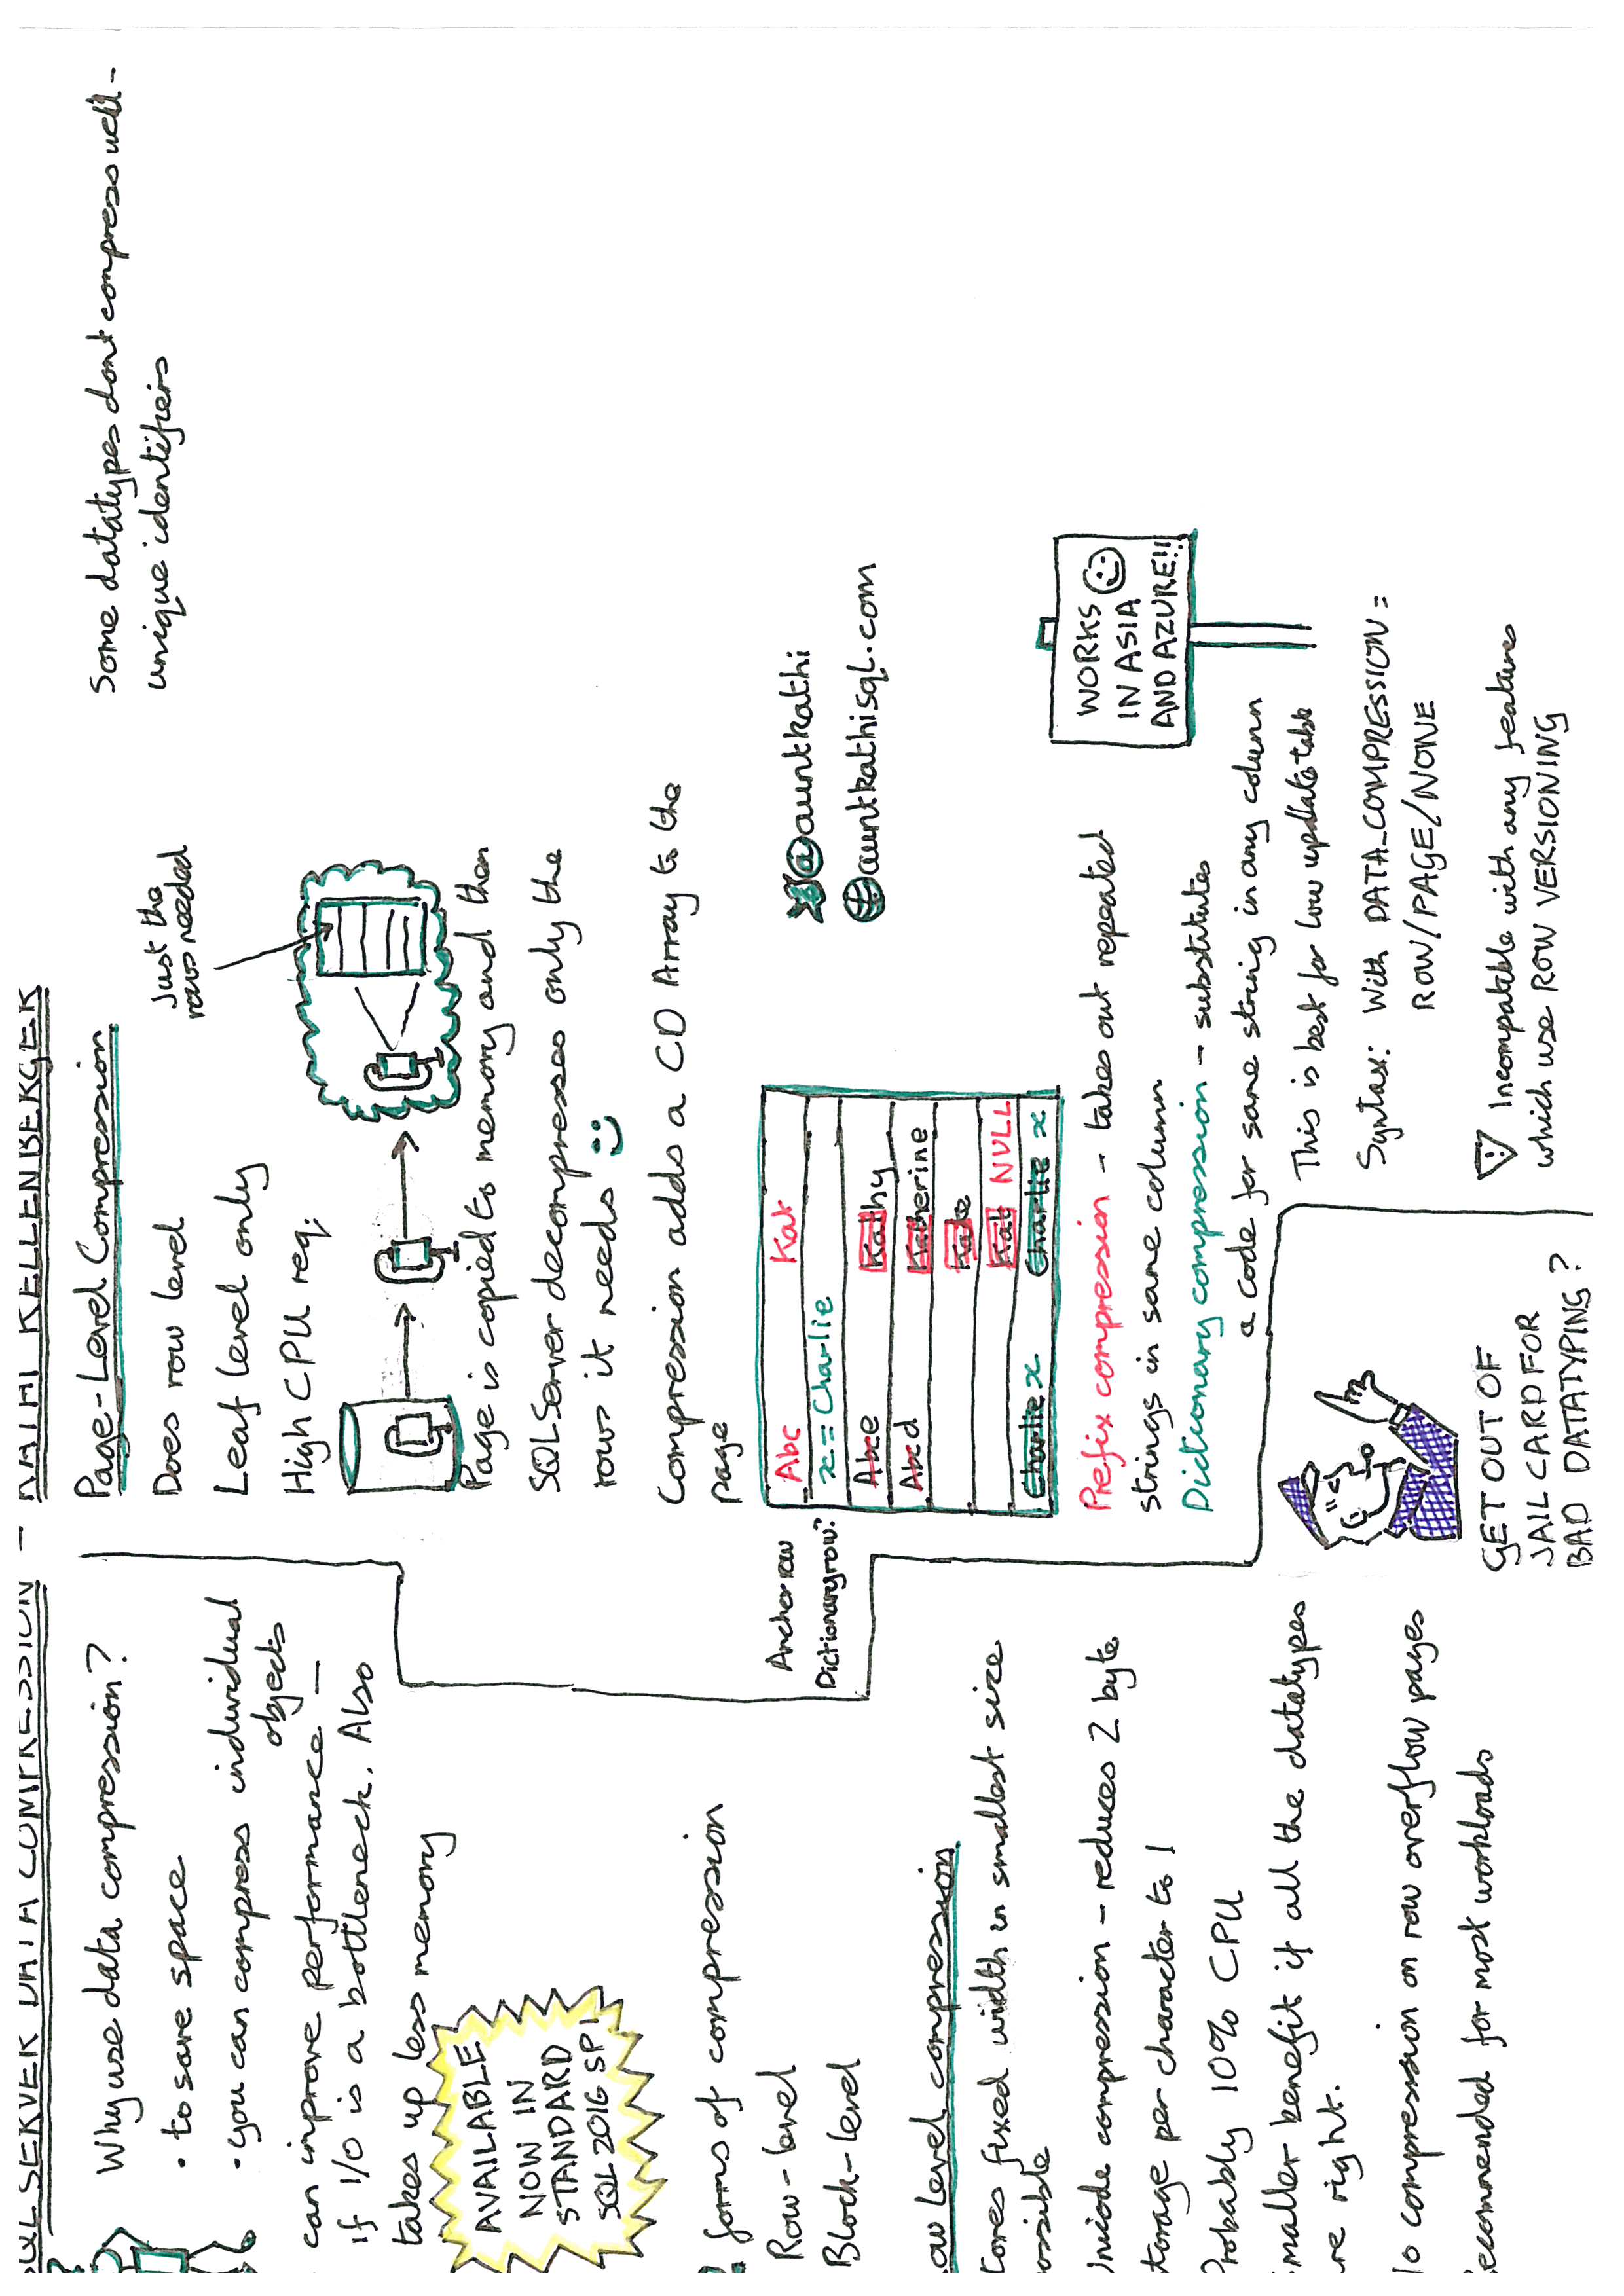 SQL SERVER DATA COMPRESSION - KATHI KELLENBERGER
Why use data compression?
• to save space
• you can compress individual
objects
can improve performance -
if I/O is a bottleneck. Also
takes up less memory
AVAILABLE
NOW IN
STANDARD
SQL 2016 SP1
forms of compression
Row-level
Block-level
ow level compression
tores fixed width in smallest size
ossible
Unicode compression - reduces 2 byte
storage per character to 1
Probably 10% CPU
smaller benefit if all the datatypes
are right.
No compression on row overflow pages
Recommended for most workloads
Page-Level Compression
Does row level
Leaf level only
High CPU req.
Just the
rows needed
Page is copied to memory and then
SQL Server decompresses only the
rows it needs
Compression adds a CD Array to the
page
Anchor row
Dictionary row?
Abc Kat
x = Charlie
Abce Kathy
Abcd Katherine
Kate
Kat NULL
Charlie x Charlie x
Prefix compression - takes out repeated
strings in same column
Dictionary compression - substitutes
a code for same string in any column
This is best for low update table
Syntax: With DATA_COMPRESSION =
ROW/PAGE/NONE
Incompatible with any features
which use ROW VERSIONING
GET OUT OF
JAIL CARD FOR
BAD DATATYPING?
@auntkathi
auntkathisql.com
WORKS
IN ASIA
AND AZURE!!
Some datatypes dont compress well -
unique identifiers